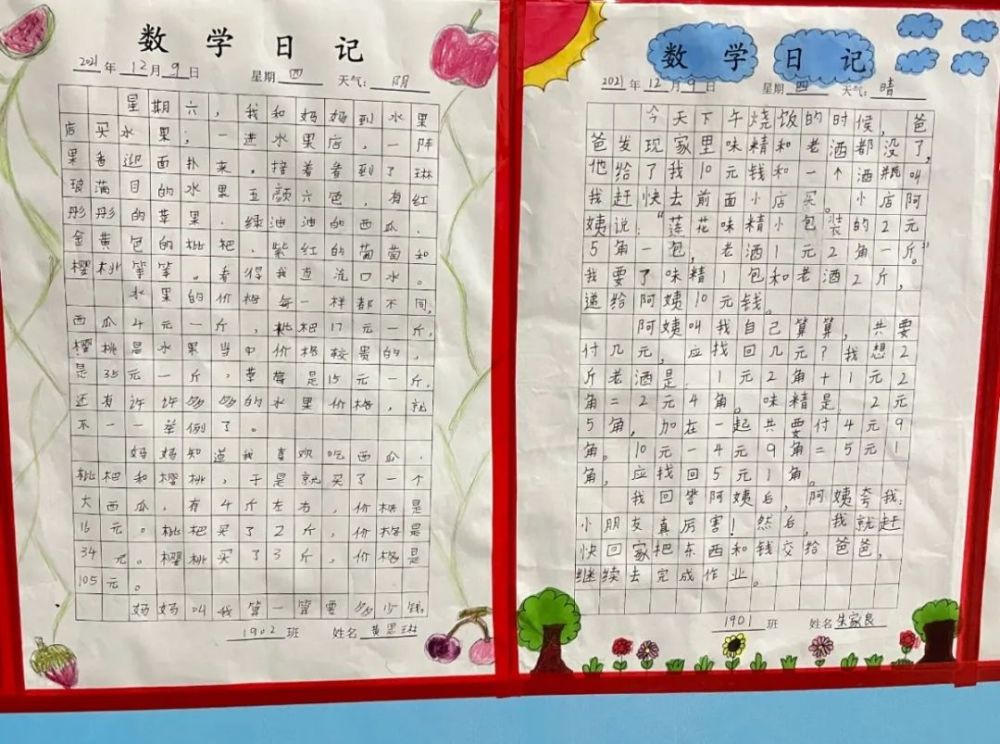 数学日记
2021年12月9日 星期四 天气：阴
星期六，我和妈妈到水果
店买水果；一进水果店，一阵
果香迎面扑来。接着看到了琳
琅满目的水果五颜六色，有红
彤彤的苹果．绿油油的西瓜．
金黄色的枇杷．紫红的葡萄和
樱桃等等。看得我直流口水。
水果的价格每一样都不同，
西瓜4元一斤，枇杷17元一斤，
樱桃是水果当中价格较贵的，
是35元一斤，草莓是15元一斤．
还有许许多多的水果价格，就
不一一举例了。
妈妈知道我喜欢吃西瓜．
枇杷和樱桃，于是就买了一个
大西瓜，有4斤左右，价格是
16元。枇杷买了2斤，价格是
34元。樱桃买了3斤，价格是
105元。
妈妈叫我算一算要多少钱，
1902班 姓名 黄思琳
数学日记
2021年12月9日 星期四 天气：晴
今天下午烧饭的时候，爸
爸发现家里味精和老酒都没了，
他给了我10元钱和一个酒瓶叫
我赶快去前面小店买。小店阿
姨说：“莲花味精小包装的2元
5角一包，老酒1元2角一斤。”
我要了味精1包和老酒2斤，
递给阿姨10元钱。
阿姨叫我自己算算，共要
付几元，应找回几元？我想2
斤老酒是：1元2角+1元2
角=2元4角。味精是：2元
5角，加在一起共要付4元9
角。10元-4元9角=5元1
角，应找回5元1角。
我回答阿姨后，阿姨夸我：
小朋友真厉害！然后，我就赶
快回家把东西和钱交给爸爸，
继续去完成作业。
1901班 姓名 朱家良